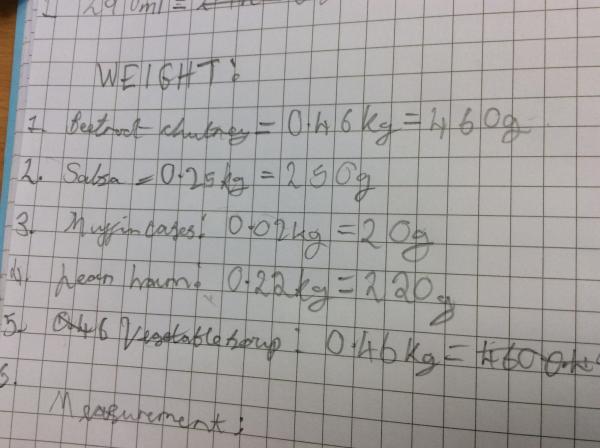 1 290ml =
WEIGHT:
1. Beetroot chutney = 0.46kg = 460g
2. Salsa = 0.25kg = 250g
3. Muffin cases: 0.02kg = 20g
4. Lean ham: 0.22kg = 220g
5. 0.46 Vegetable soup: 0.46kg = 460
Measurement: